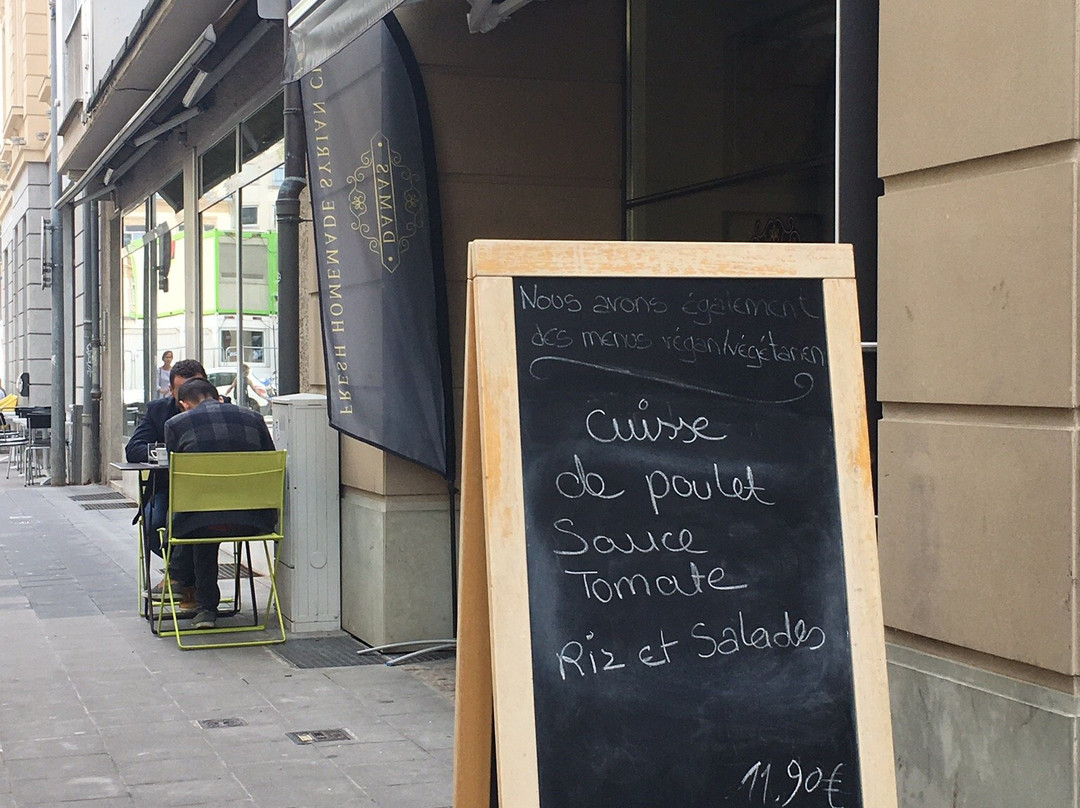 FRESH HOMEMADE SYRIAN
DAMAS
Nous avons également
des menus végan/végétarien
Cuisse
de poulet
Sauce
Tomate
Riz et Salades
11,90€